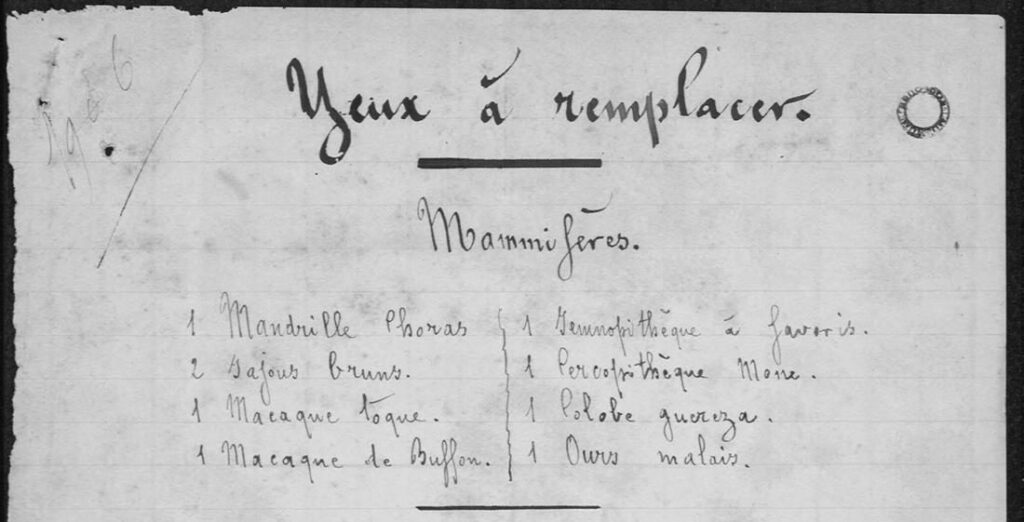 Yeux à remplacer.
Mammifères.
1 Mandrille Choras
2 Sajous bruns.
1 Macaque toque.
1 Macaque de Buffon.
1 Semnopithèque à favoris.
1 Cercopithèque Mone.
1 Colobe guereza.
1 Ours malais.